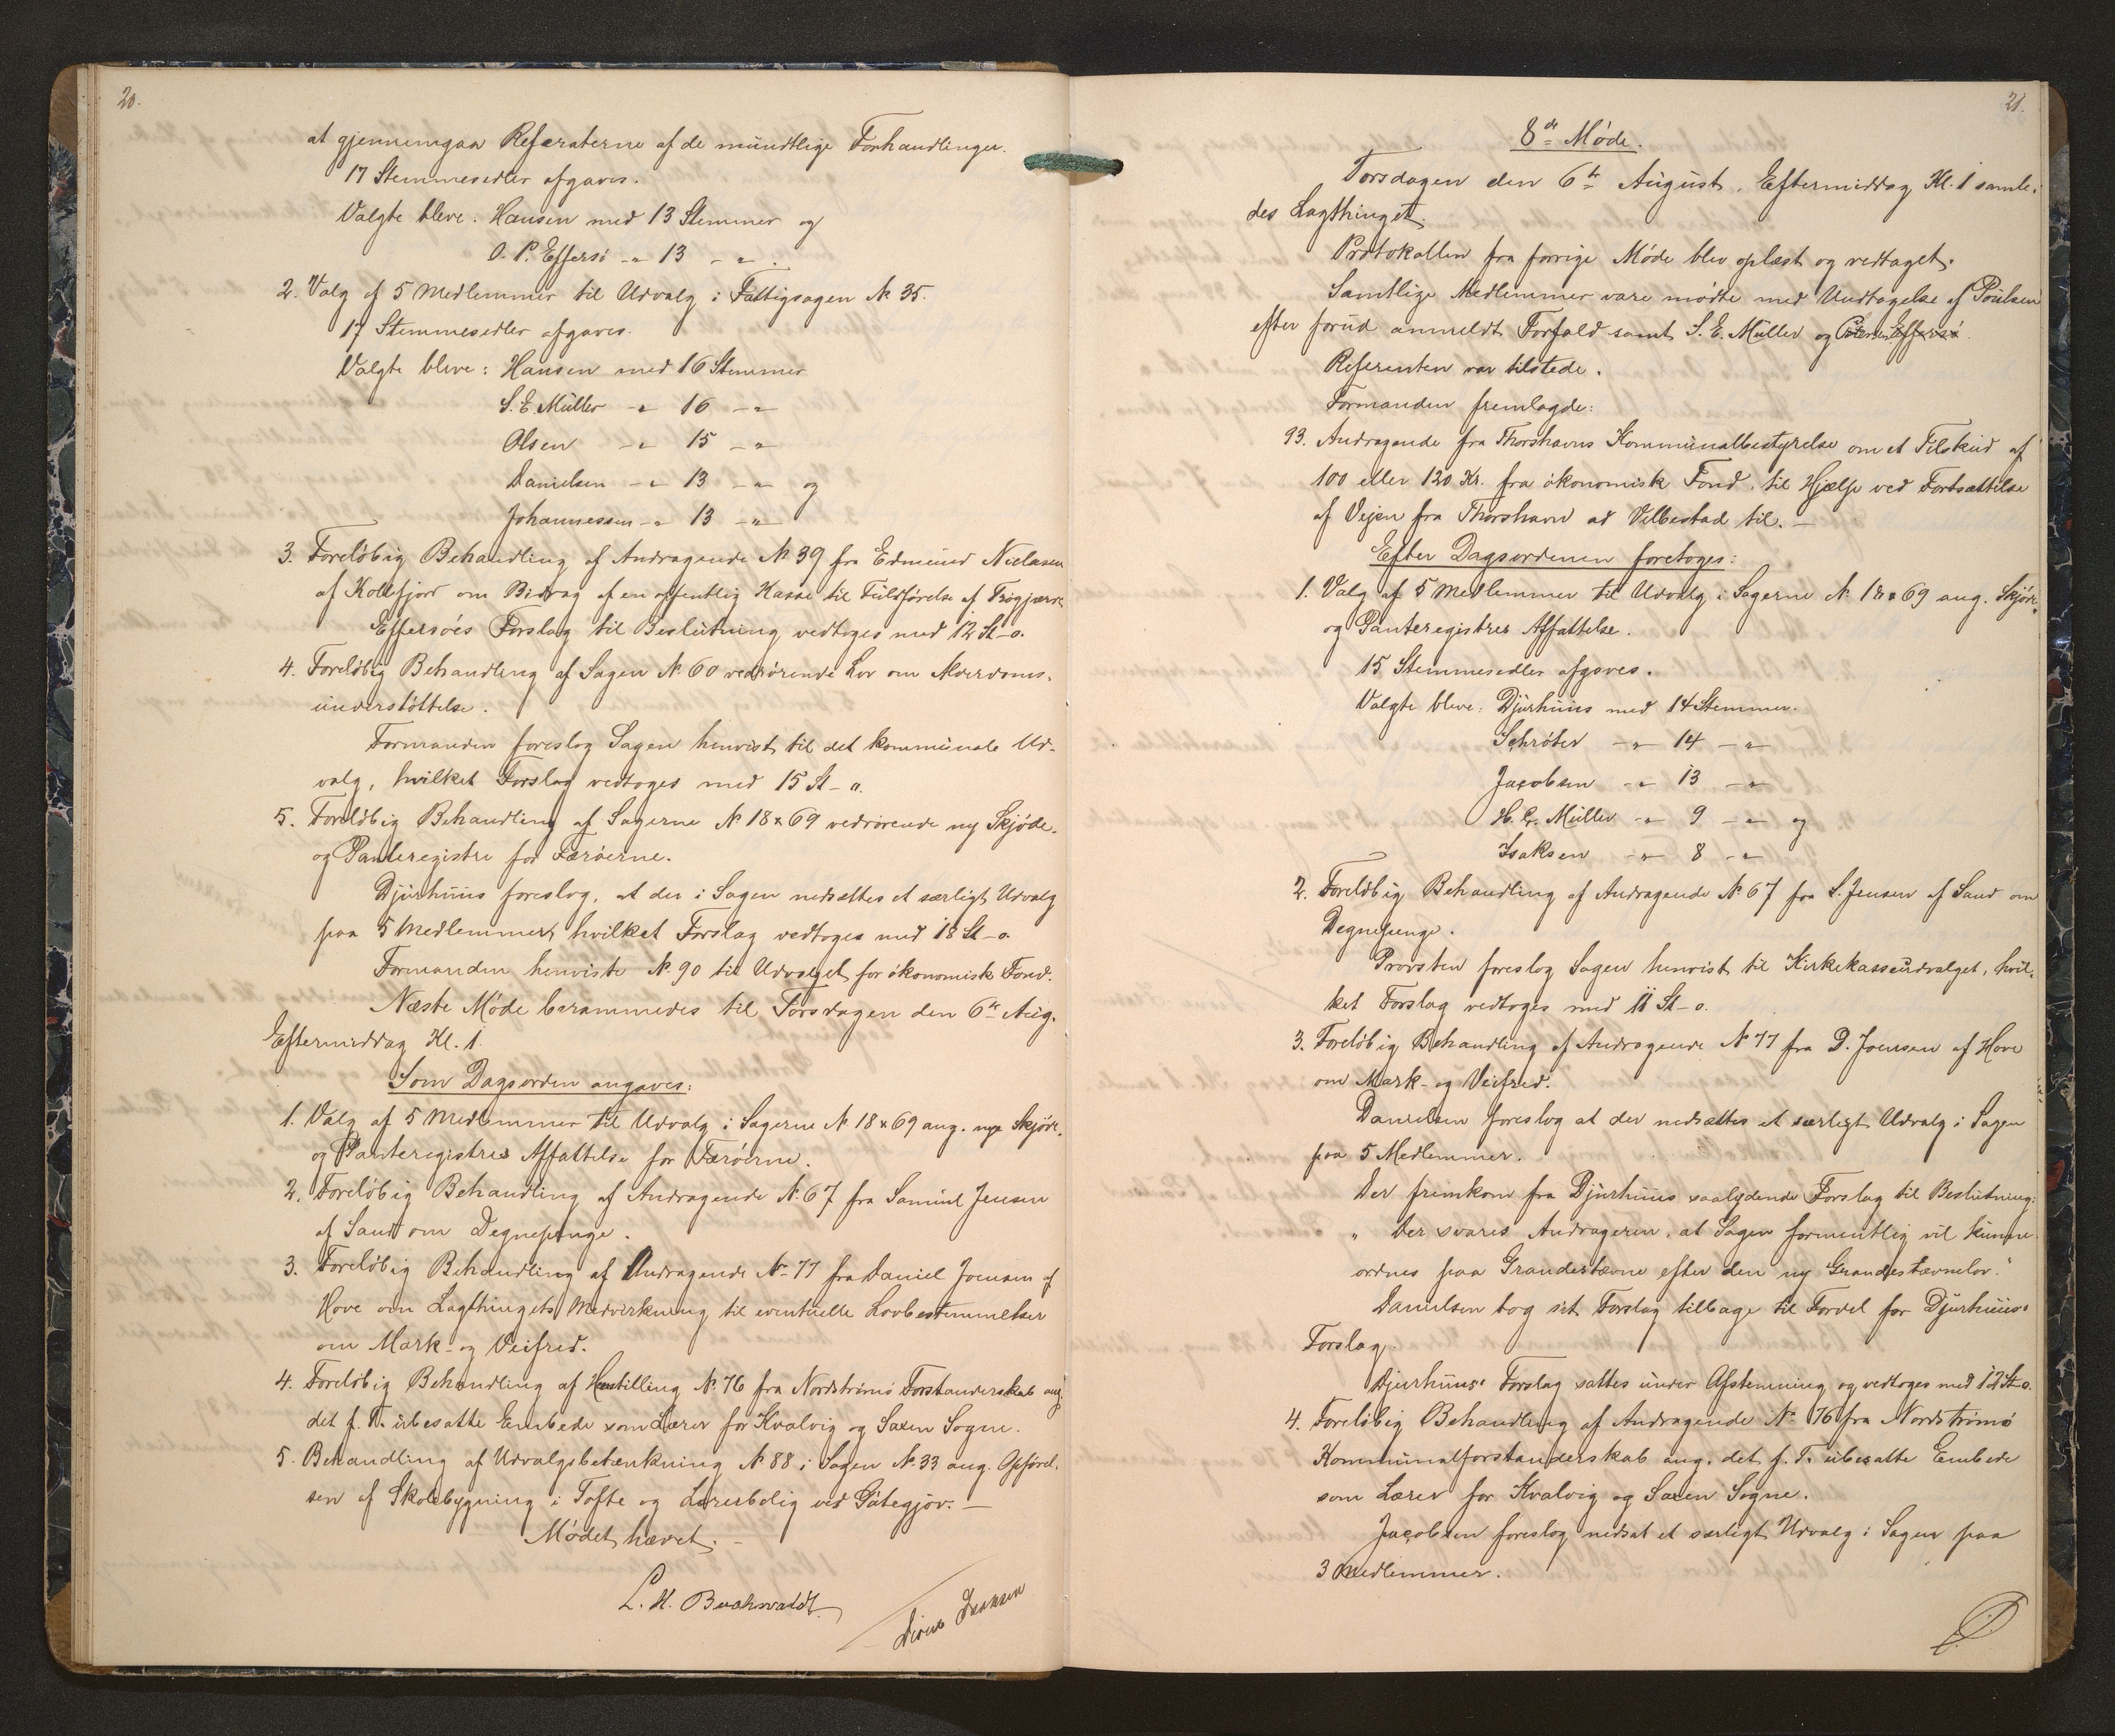 20.
at gjennemgaa Referaterne af de mundtlige Forhandlinger.
17 Stemmesedler afgaves.
Valgte bleve: Hansen med 13 Stemmer og
O. P. Effersö -"- 13 -"-.
2. Valg af 5 Medlemmer til Udvalg i Fattigsagen № 35.
17 Stemmesedler afgaves.
Valgte bleve: Hansen med 16 Stemmer
S. E. Müller -"- 16 -"-
Olsen -"- 15 -"-
Danielsen -"- 13 -"- og
Johannessen -"- 13 -"-
3. Foreløbig Behandling af Andragende № 39 fra Edmund Niclasen
af Kollefjord om Bidrag af en offentlig Kasse til Fuldførelse af
Effersøes Forslag til Beslutning vedtoges med 12 St-0.
4. Foreløbig Behandling af Sagen № 60 vedrørende Lov om Alderdoms-
understøttelse.
Formanden foreslog Sagen henvist til det kommunale Ud-
valg, hvilket Forslag vedtoges med 15 St-0.
5. Foreløbig Behandling af Sagerne № 18 & 69 vedrørende ny Skjøde-
og Panteregistre for Færöerne.
Djurhuus foreslog, at der i Sagen nedsættes et særligt Udvalg
paa 5 Medlemmer, hvilket Forslag vedtoges med 18 St-0.
Formanden henviste № 90 til Udvalget for økonomisk Fond.
Næste Møde berammedes til Torsdagen den 6te Aug.
Eftermiddag Kl. 1.
Som Dagsorden angaves:
1. Valg af 5 Medlemmer til Udvalg i Sagerne № 18 & 69 ang. nye Skjøde-
og Panteregistres Affattelse for Færöerne.
2. Foreløbig Behandling af Andragende № 67 fra Samuel Jensen
af Sand om Degnepenge.
3. Foreløbig Behandling af Andragende № 77 fra Daniel Joensen af
Hove om Lagthingets Medvirkning til eventuelle Lovbestemmelser
om Mark- og Veifred.
4. Foreløbig Behandling af Henstilling № 76 fra Nordstrømø Forstanderskab ang
det f. T. ubesatte Embede som Lærer for Kvalvig og Saxen Sogne.
5. Behandling af Udvalgsbetænkning № 88 i Sagen № 33 ang. Opførel-
sen af Skolebygning i Tofte og Lærerbolig ved Gøtegjov. —
Mødet hævet. —
L. H. Buchwaldt.
21.
8de Møde.
Torsdagen den 6te August, Eftermiddag Kl. 1 samle-
des Lagthinget.
Protokollen fra forrige Møde blev oplæst og vedtaget.
Samtlige Medlemmer vare mødte med Undtagelse af Poulsen
efter forud anmeldt Forfald samt S. E. Müller og Effersö.
Referenten var tilstede.
Formanden fremlagde:
93. Andragende fra Thorshavns Kommunalbestyrelse om et Tilskud af
100 eller 120 Kr. fra økonomisk Fond, til Hjælp ved Fortsættelse
af Vejen fra Thorshavn ad Velbestad til. —
Efter Dagsordenen foretoges:
1. Valg af 5 Medlemmer til Udvalg i Sagerne № 18 & 69 ang. Skjøde-
og Panteregistres Affattelse.
15 Stemmesedler afgaves.
Valgte bleve: Djurhuus med 14 Stemmer.
Schrøter -"- 14 -"-
Jacobsen -"- 13 -"-
H. C. Müller -"- 9 -"- og
Isaksen -"- 8 -"-
2. Foreløbig Behandling af Andragende № 67 fra S. Jensen af Sand om
Degnepenge.
Provsten foreslog Sagen henvist til Kirkekasseudvalget, hvil-
ket Forslag vedtoges med 11 St-0.
3. Foreløbig Behandling af Andragende № 77 fra D. Joensen af Hove
om Mark- og Veifred.
Danielsen foreslog at der nedsættes et særligt Udvalg i Sagen
paa 5 Medlemmer.
Der fremkom fra Djurhuus saalydende Forslag til Beslutning:
„ Der svares Andrageren, at Sagen formentlig vil kunne
ordnes paa Grandestævne efter den ny Grandestævnelov."
Danielsen tog sit Forslag tilbage til Fordel for Djurhuus'
Forslag.
Djurhuus' Forslag sattes under Afstemning og vedtoges med 12 St-0.
4. Foreløbig Behandling af Andragende № 76 fra Nordstrømø
Kommunalforstanderskab ang. det f. T. ubesatte Embede
som Lærer for Kvalvig og Saxen Sogne.
Jacobsen foreslog nedsat et særligt Udvalg i Sagen paa
3 Medlemmer.